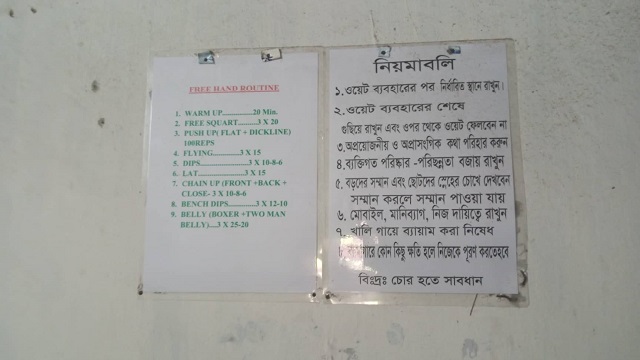 FREE HAND ROUTINE
1. WARM UP..............20 Min.
2. FREE SQUART............3 X 20
3. PUSH UP( FLAT + DICKLINE)
100REPS
4. FLYING..............3 X 15
5. DIPS....................3 X 10-8-6
6. LAT....................3 X 15
7. CHAIN UP (FRONT +BACK +
CLOSE- 3 X 10-8-6
8. BENCH DIPS............3 X 12-10
9. BELLY (BOXER +TWO MAN
BELLY)....3 X 25-20
নিয়মাবলি
১.ওয়েট ব্যবহারের পর নির্ধারিত স্থানে রাখুন।
২.ওয়েট ব্যবহারের শেষে
গুছিয়ে রাখুন এবং ওপর থেকে ওয়েট ফেলবেন না
৩.অপ্রয়োজনীয় ও অপ্রাসংগিক কথা পরিহার করুন
৪.ব্যক্তিগত পরিষ্কার -পরিছন্নতা বজায় রাখুন
৫. বড়দের সম্মান এবং ছোটদের স্নেহের চোখে দেখবেন
সম্মান করলে সম্মান পাওয়া যায়
৬. মোবাইল, মানিব্যাগ, নিজ দায়িত্বে রাখুন
৭. খালি গায়ে ব্যায়াম করা নিষেধ
কোন কিছু ক্ষতি হলে নিজেকে পূরণ করতেহবে
বিঃদ্রঃ চোর হতে সাবধান